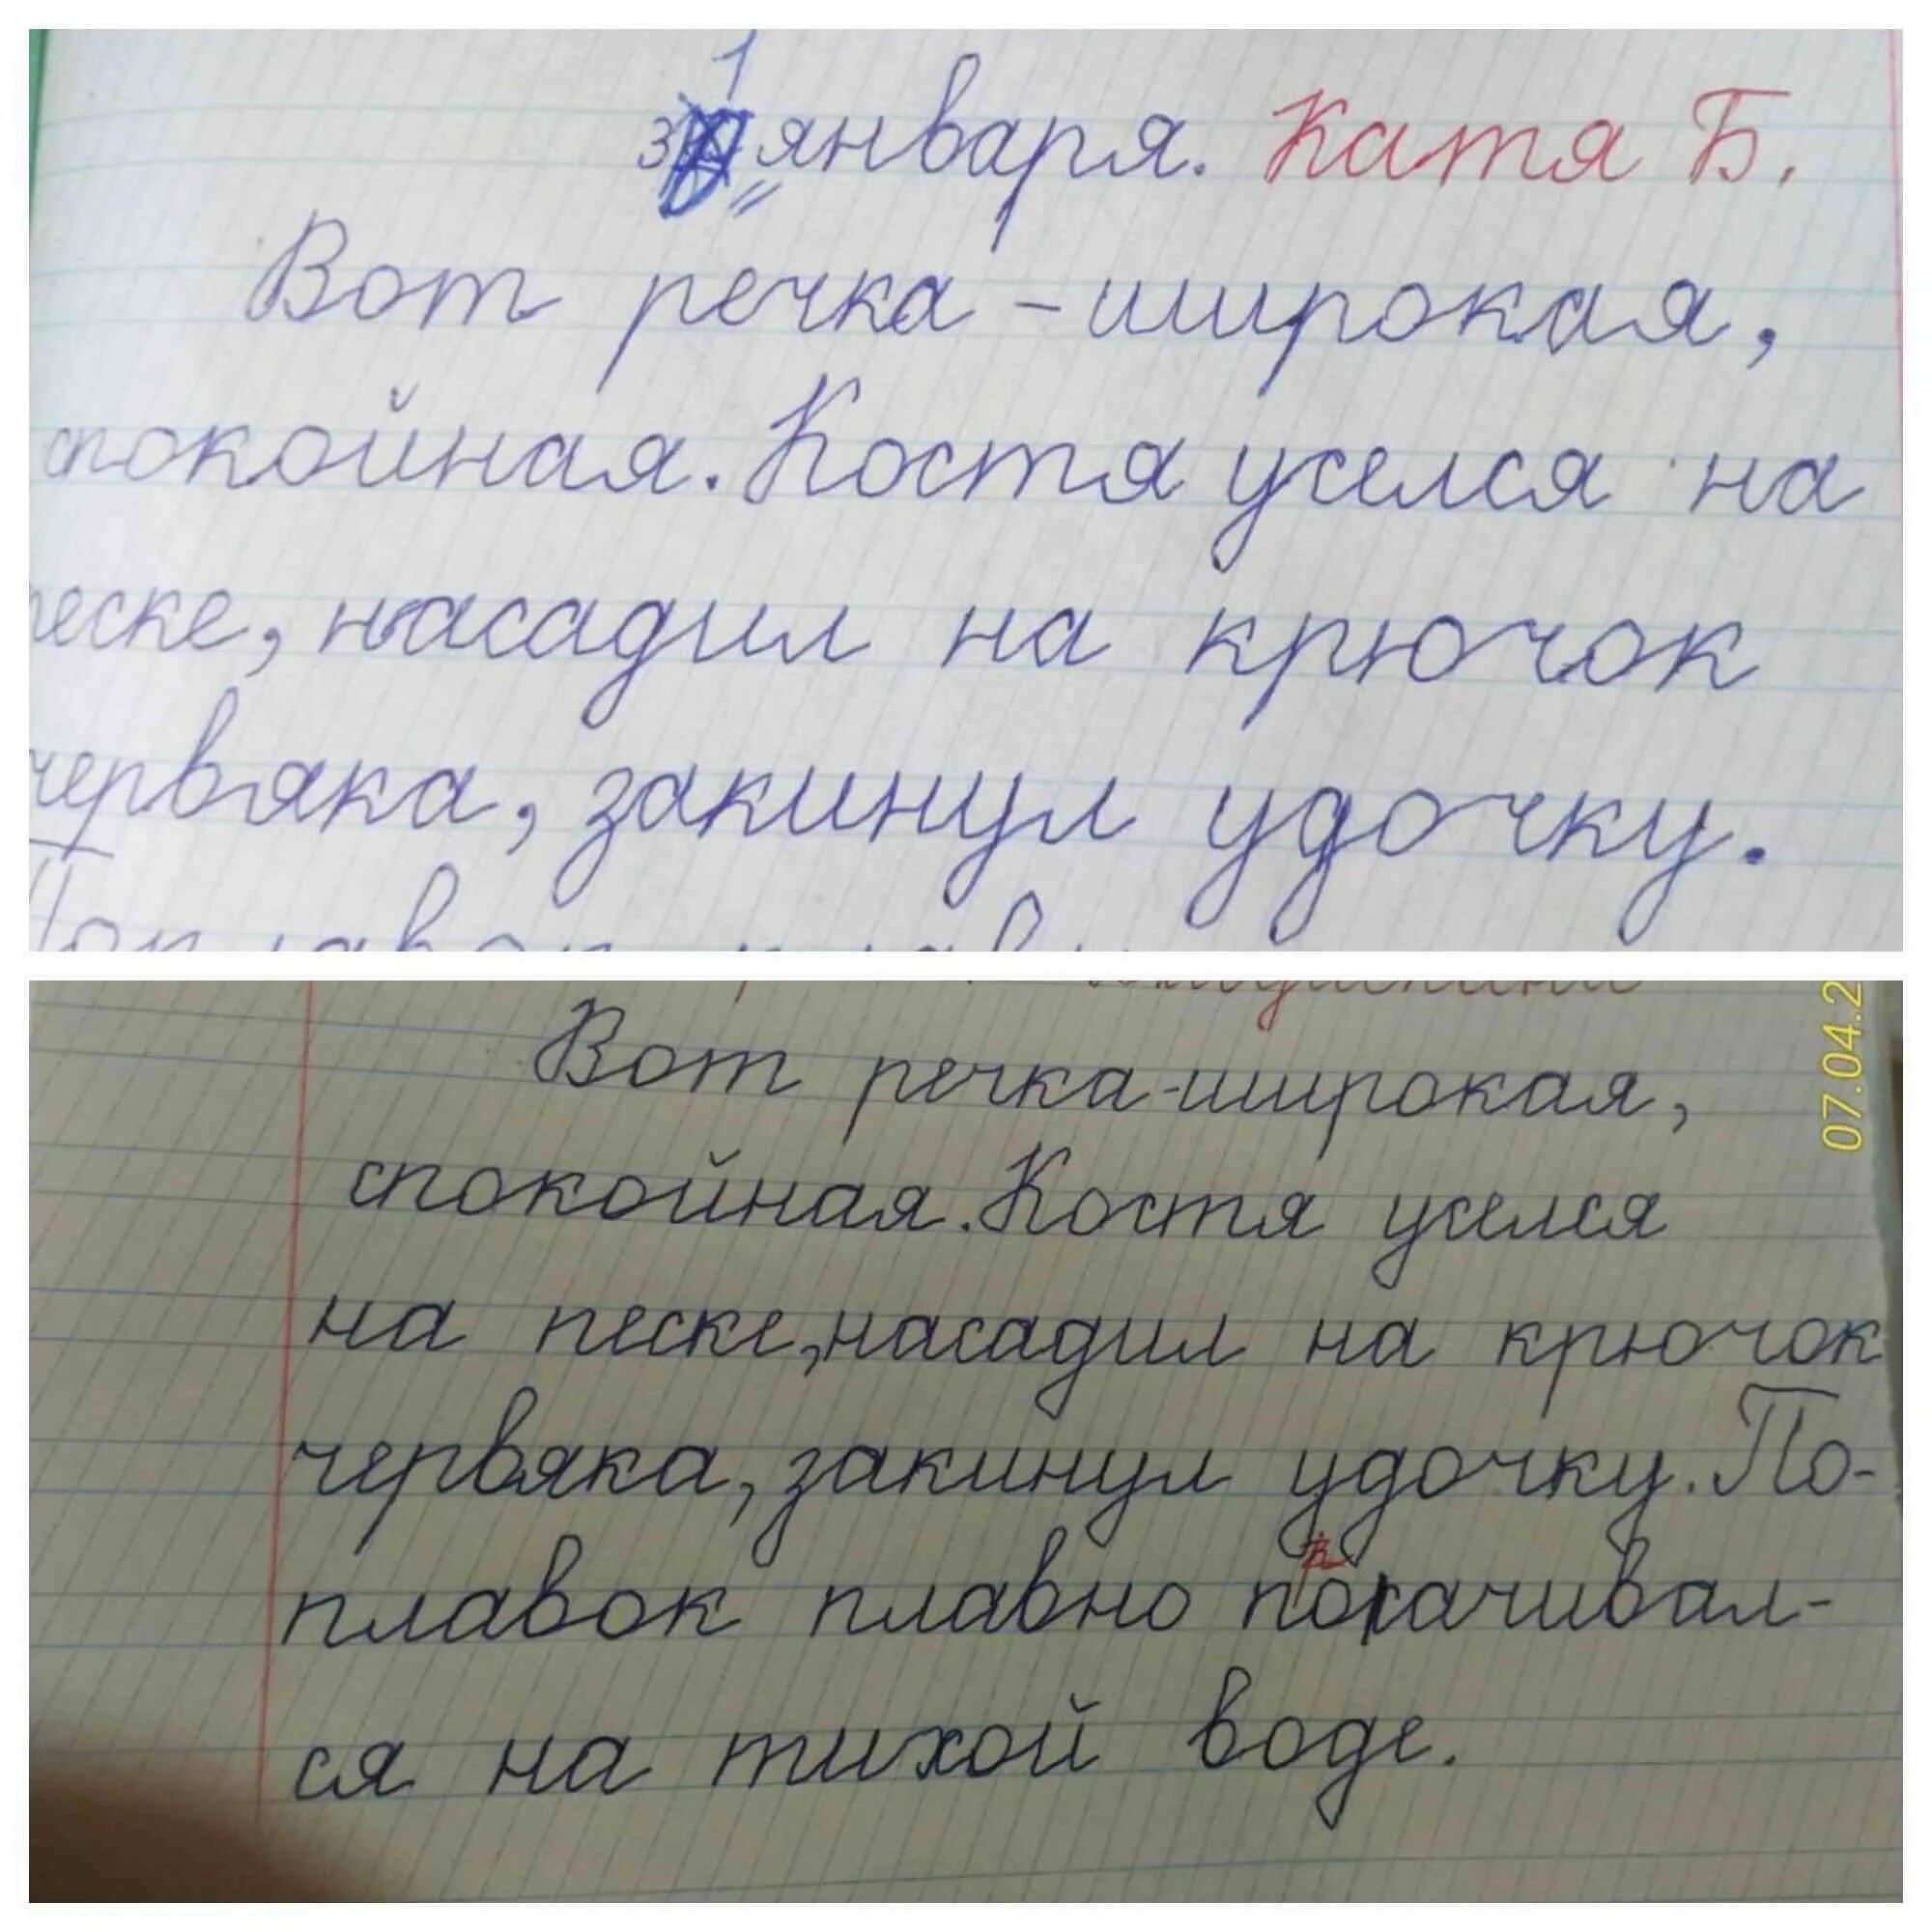 31 января. Катя Б.
Вот речка - широкая,
спокойная. Костя уселся на
песке, насадил на крючок
червяка, закинул удочку.
Вот речка - широкая,
07.04.2
спокойная. Костя уселся
на песке, насадил на крючок
червяка, закинул удочку. По-
плавок плавно покачивал-
ся на тихой воде.